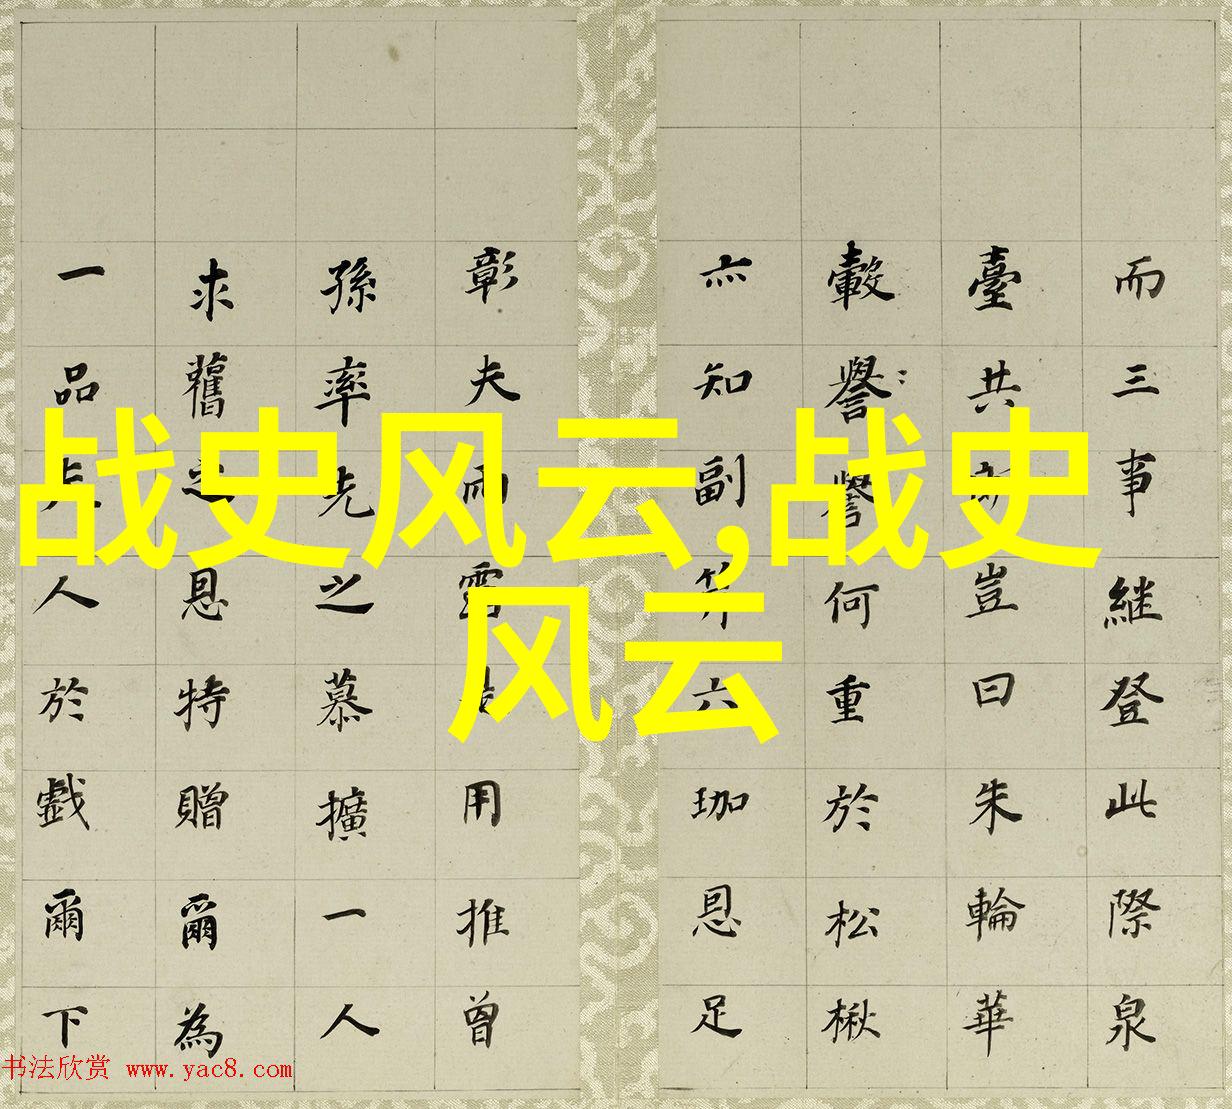 而三事继登此際泉
臺共豈曰朱輪華
轂譽譽何重於松楸
亦知副笄六珈恩足
彰夫而雪用推曾
孫率先之慕擴一人
求舊之恩特贈爾為
一品夫人於戲爾下
战史风云,战史
风云
书法欣赏 www.yac8.com